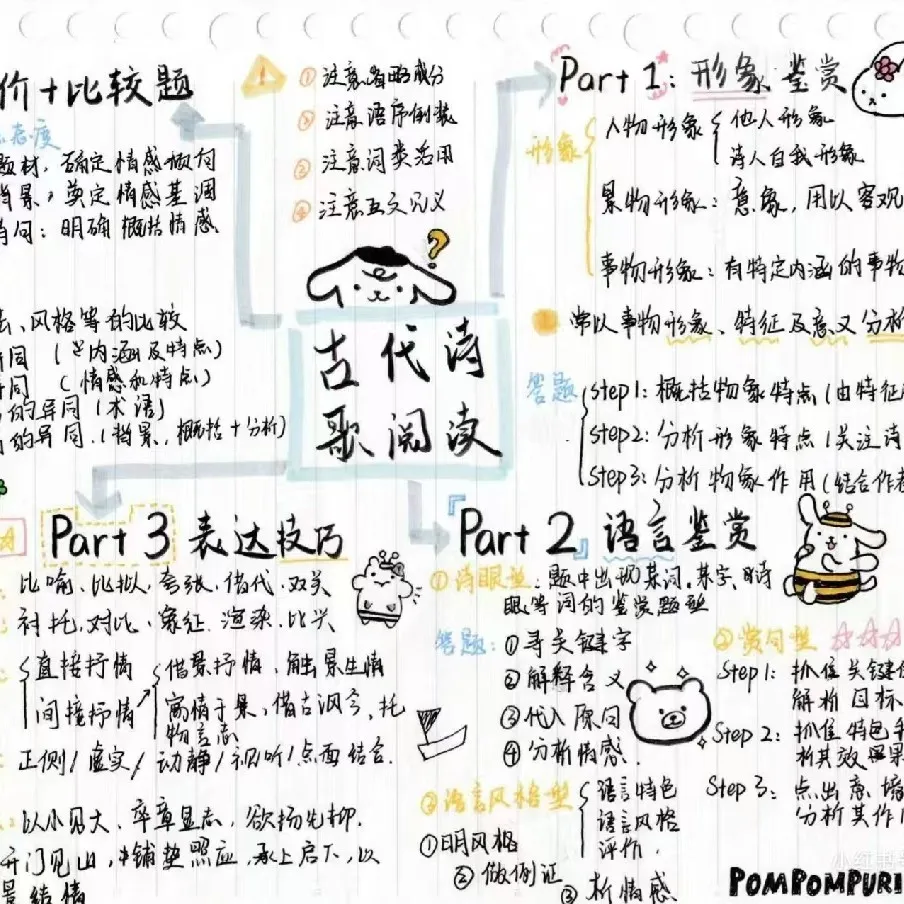 价+比较题
态度
题材，确定情感倾向
背景，奠定情感基调
诗句：明确概括情感
、风格等的比较
异同（内涵及特点）
异同（情感和特点）
的异同（术语）
的异同（背景、概括+分析）
①注意省略成分
②注意语序倒装
③注意词类活用
④注意互文见义
古代诗
歌阅读
Part 1：形象鉴赏
形象
人物形象
他人形象
诗人自我形象
景物形象：意象，用以客观
事物形象：有特定内涵的事物
常以事物形象、特征及意义分析
答题
Step1：概括物象特点（由特征
Step2：分析形象特点（关注诗
Step3：分析物象作用（结合作者
Part 3 表达技巧
比喻、比拟、夸张、借代、双关
衬托、对比、象征、渲染、比兴
直接抒情
间接抒情
借景抒情、触景生情
寓情于景、借古讽今、托
物言志
正侧/虚实/动静/视听/点面结合.
以小见大、卒章显志、欲扬先抑.
开门见山、铺垫照应、承上启下、以
景结情
Part 2 『语言鉴赏』
①诗眼型：题中出现某词、某字、诗
眼等词的鉴赏题型
答题：①寻关键字
②解释含义
③代入原句
④分析情感.
②语言风格型
语言特色
语言风格
评价.
①明风格
②做例证
③析情感
③赏句型
Step1：抓住关键
解析目标
Step 2：抓住特色
析其效果
Step 3：点出意境
分析其作用
POMPOMPURI
小红书